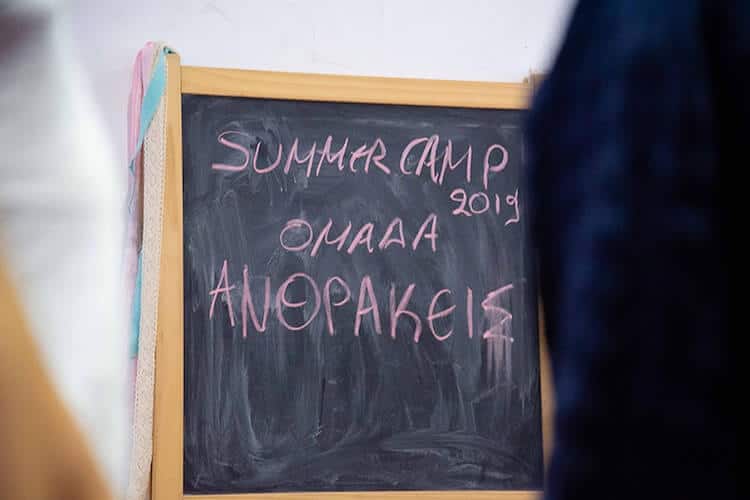 SUMMER CAMP
2019
ΟΜΑΔΑ
ΑΝΘΡΑΚΕΙΣ